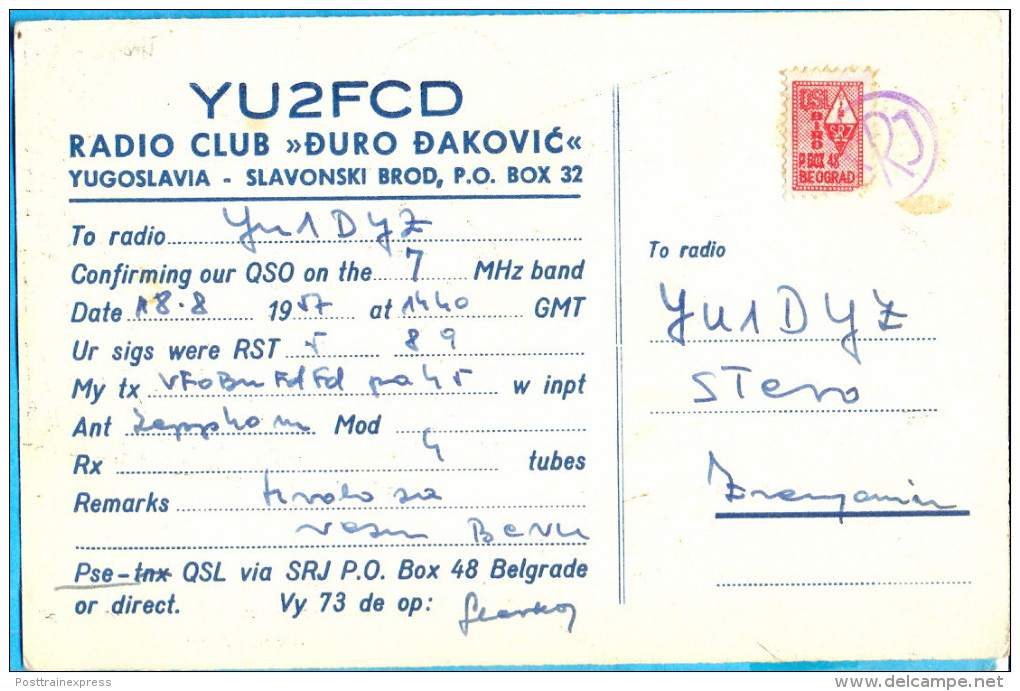 YU2FCD
RADIO CLUB »ĐURO ĐAKOVIĆ«
YUGOSLAVIA - SLAVONSKI BROD, P.O. BOX 32
To radio Yu1DYZ
Confirming our QSO on the 7 MHz band
Date 18.8 1957 at 1440 GMT
Ur sigs were RST 5 8 9
My tx VFO Bu Fd Fd pa 45 w inpt
Ant Mod
Rx 4 tubes
Remarks hvala za
vezu
Pse-tnx QSL via SRJ P.O. Box 48 Belgrade
or direct. Vy 73 de op:
QSL
BIRO
SRJ
P. BOX 48
BEOGRAD
SRJ
To radio
YU1DYZ
Stevo
Zrenjanin
Posttrainexpress
delcampe.net